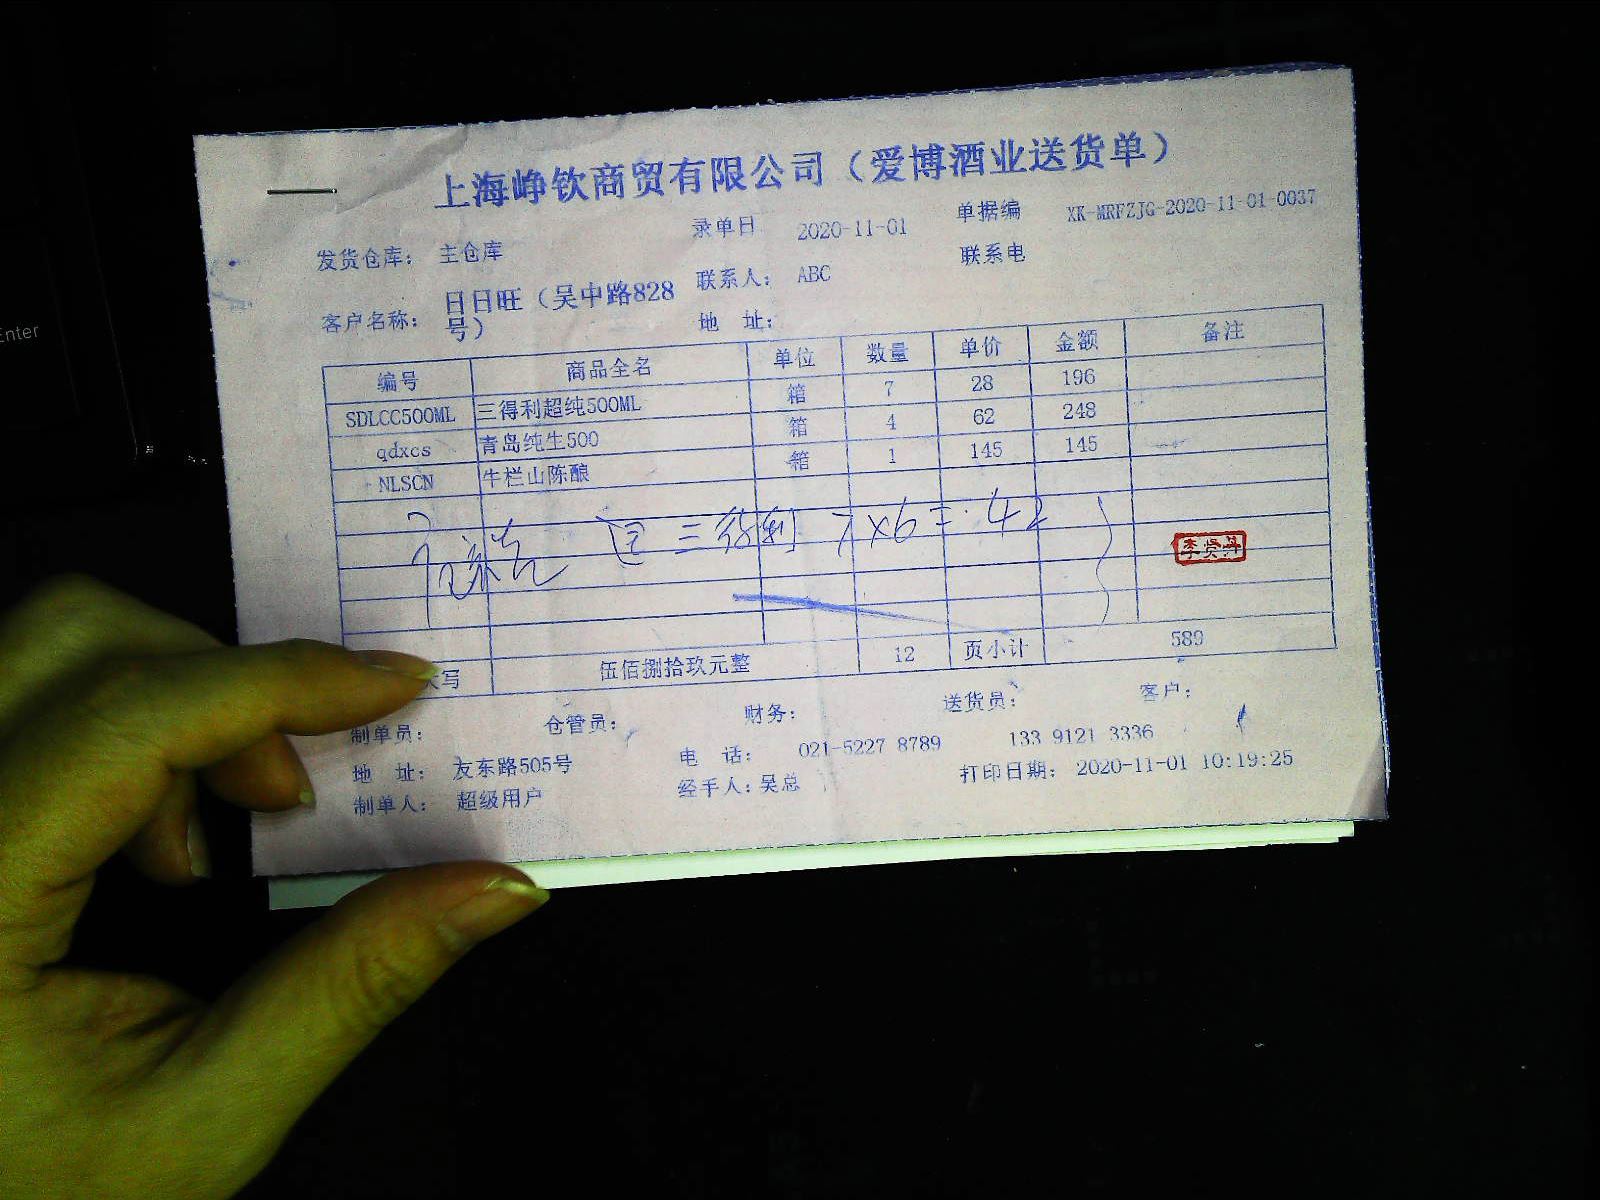 上海峥钦商贸有限公司（爱博酒业送货单）
发货仓库： 主仓库 录单日 2020-11-01 单据编 XK-MRFZJG-2020-11-01-0037
客户名称： 日日旺（吴中路828号） 联系人： ABC 联系电
地 址：
编号 商品全名 单位 数量 单价 金额 备注
SDLCC500ML 三得利超纯500ML 箱 7 28 196
qdxcs 青岛纯生500 箱 4 62 248
NLSCN 牛栏山陈酿 箱 1 145 145
三得利 7×6=42
大写 伍佰捌拾玖元整 12 页小计 589
制单员： 仓管员： 财务： 送货员： 客户：
地 址： 友东路505号 电 话： 021-5227 8789 133 9121 3336
制单人： 超级用户 经手人：吴总 打印日期： 2020-11-01 10:19:25
Enter